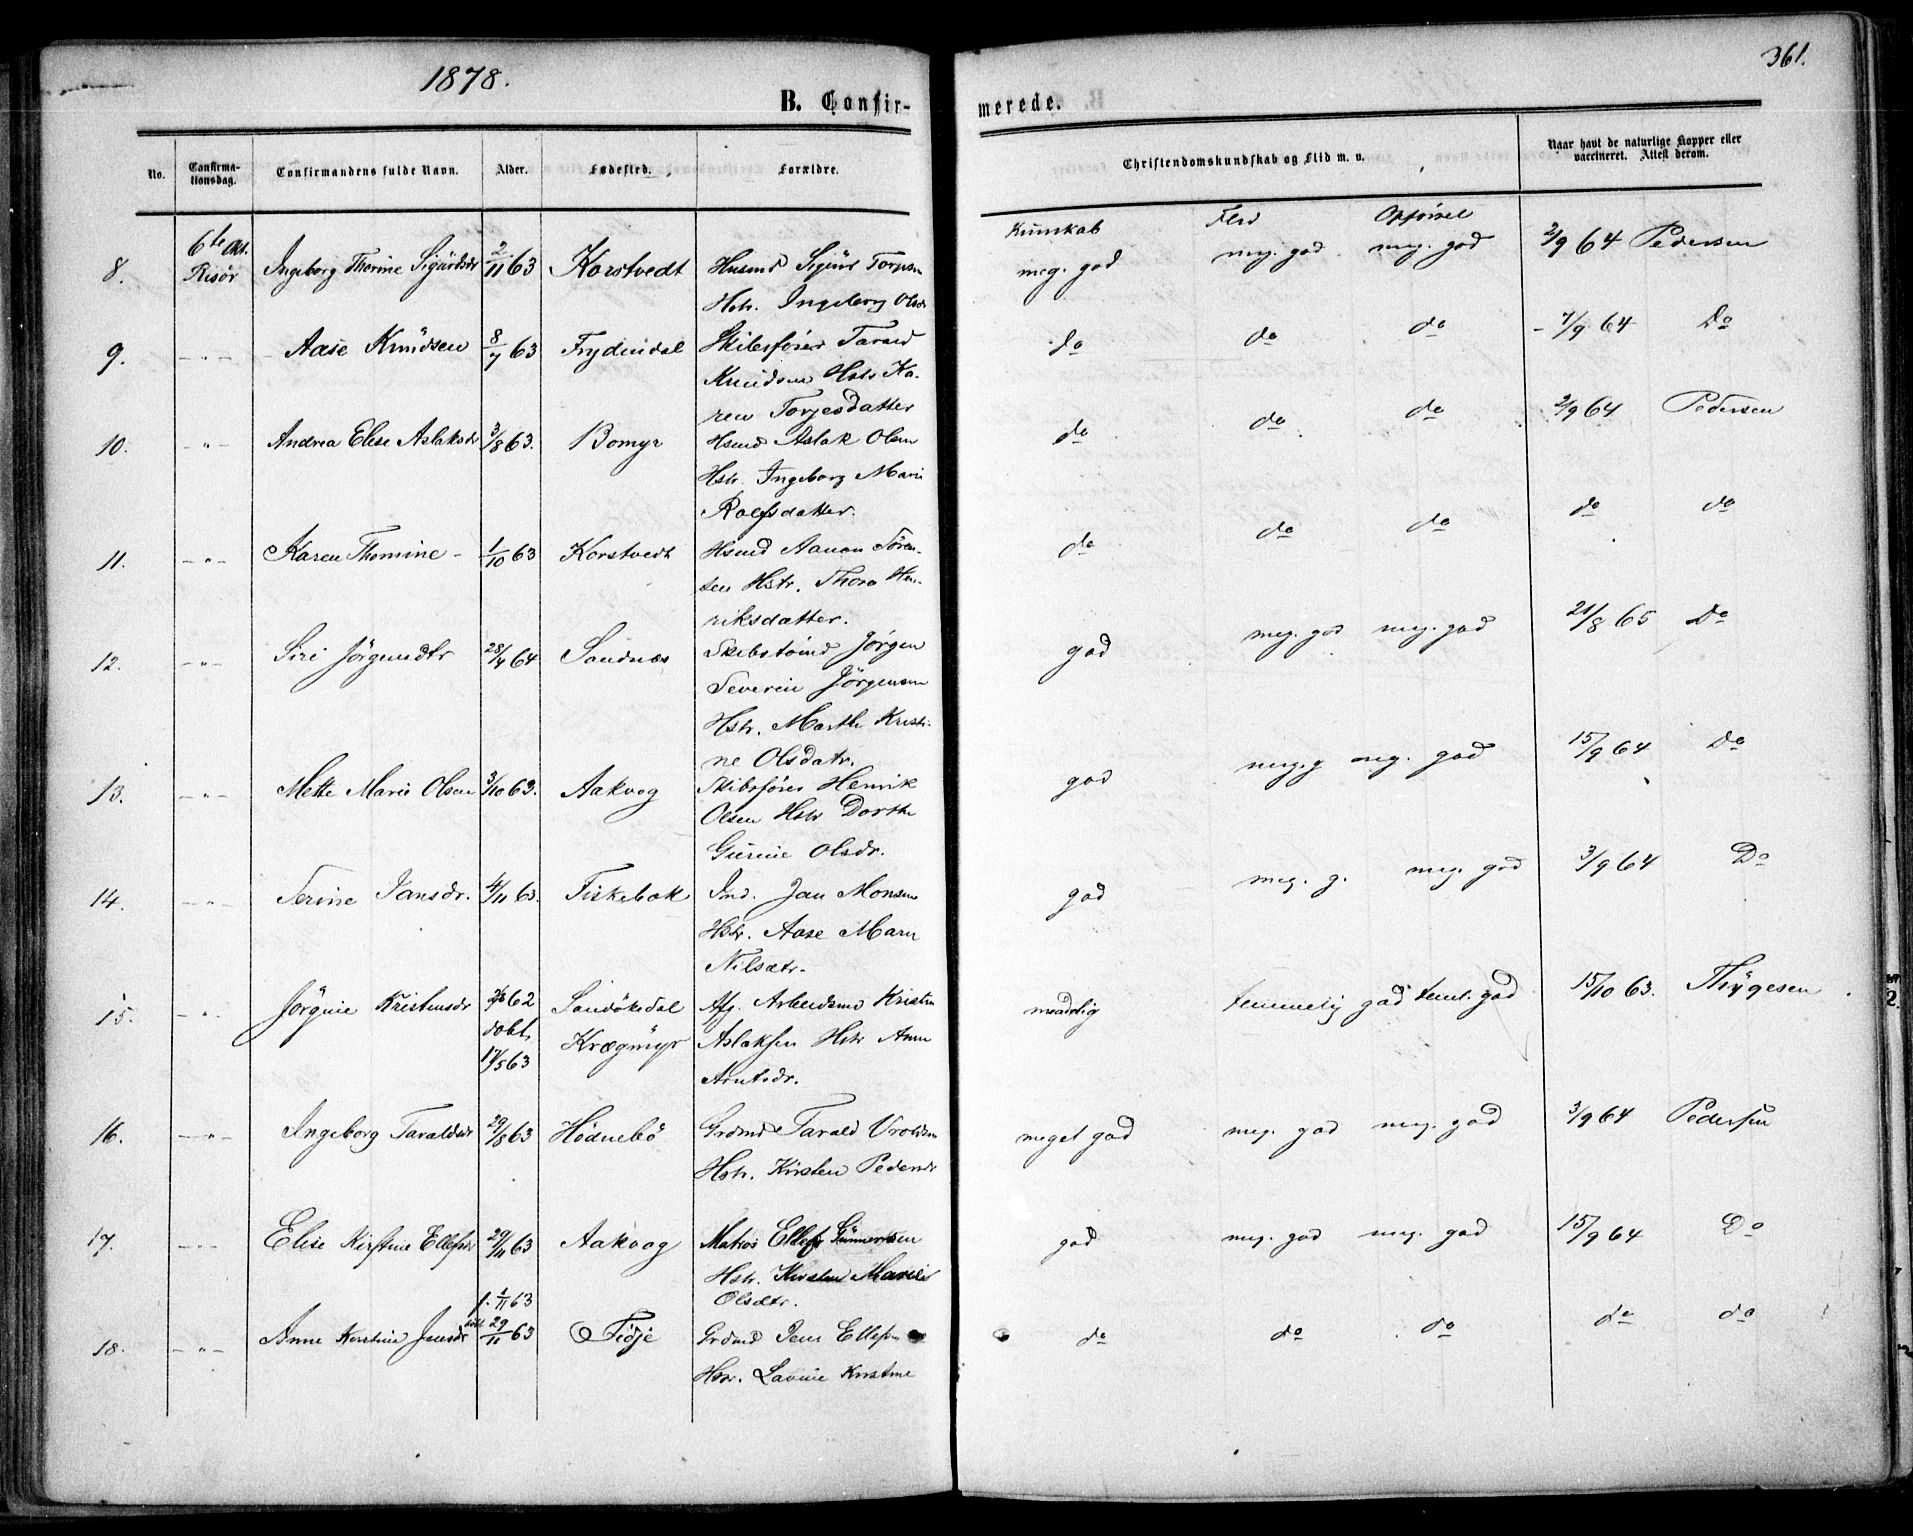 1878.
361.
B. Confirmerede.
No.
Confirmationsdag.
Confirmandens fulde Navn.
Alder.
Fødested.
Forældre.
Christendomskundskab og Flid m. v.
Naar havt de naturlige Kopper eller vaccineret. Attest derom.
Kunskab Flid Opførsel
8. 6te Okt. Risør Ingeborg Thorine Sigurdsdr 2/11 63 Korstvedt Husmd Sigurd
Hstr. Ingeborg Olsdr
meg. god meg. god meg. god 2/9 64 Pedersen
9. - " - Aase Knudsen 8/7 63 Frydendal Skibsfører Tarald
Knudsen Hstr Ka-
ren Torjesdatter
do do do 7/9 64 Do
10. - " - Andrea Elise Aslaksdr 3/8 63. Bomyr Hsmd Aslak Olsen
Hstr. Ingeborg Marie
Rolfsdatter.
do do do 2/9 64 Pedersen
11. - " - Karen Thomine - 1/10 63 Korstvedt Hsmd Aanon Søren-
sen Hstr. Thora Hen-
riksdatter.
do do do do do
12. - " - Siri Jörgensdtr 28/4 64 Sandnæs Skibstømd Jørgen
Severin Jørgensen
Hstr. Marthe Kristi-
ne Olsdatr.
god meg. god meg. god 21/8 65 Do
13. - " - Mette Marie Olsen 3/10 63. Aakvog Skibsfører Henrik
Olsen Hstr Dorthe
Gurine Olsdr.
god meg. g meg. god 15/9 64 Do
14. - " - Terine Jansdr. 4/11 63. Fiskebæk Jan Monsen
Hstr. Aase Maren
Nilsdtr.
god meg. g. meg. god 3/9 64 Do
15. - " - Jörgine Kristensdr 62 Sandökedal Afg. Arbeidsmd Kristen
döbt, Krægmyr Aslaksen Hstr Anne
17/5 63 Arntsdr.
maadelig temmelig god teml. god 15/10 63. Thygesen
16. - " - Ingeborg Taraldsdr 29/8 63 Hödnebö Grdmd Tarald Vroldsen
Hstr. Kirsten Pedersdr
meget god meg. god meg. god 3/9 64 Pedersen
17. - " - Elise Kirstine Ellefsdr 29/11 63 Aakvog Matros Ellef Gunnersen
Hstr. Kirsten Marie
Olsdtr.
god meg. god meg. god 15/9 64 Do
f. 1/11 63
18. - " - Anne Kerstine Jensdr döbt 29/11 63 Fiöje Grdmd Jens Ellefsen
Hstr. Lavine Kirstine
do do do do do